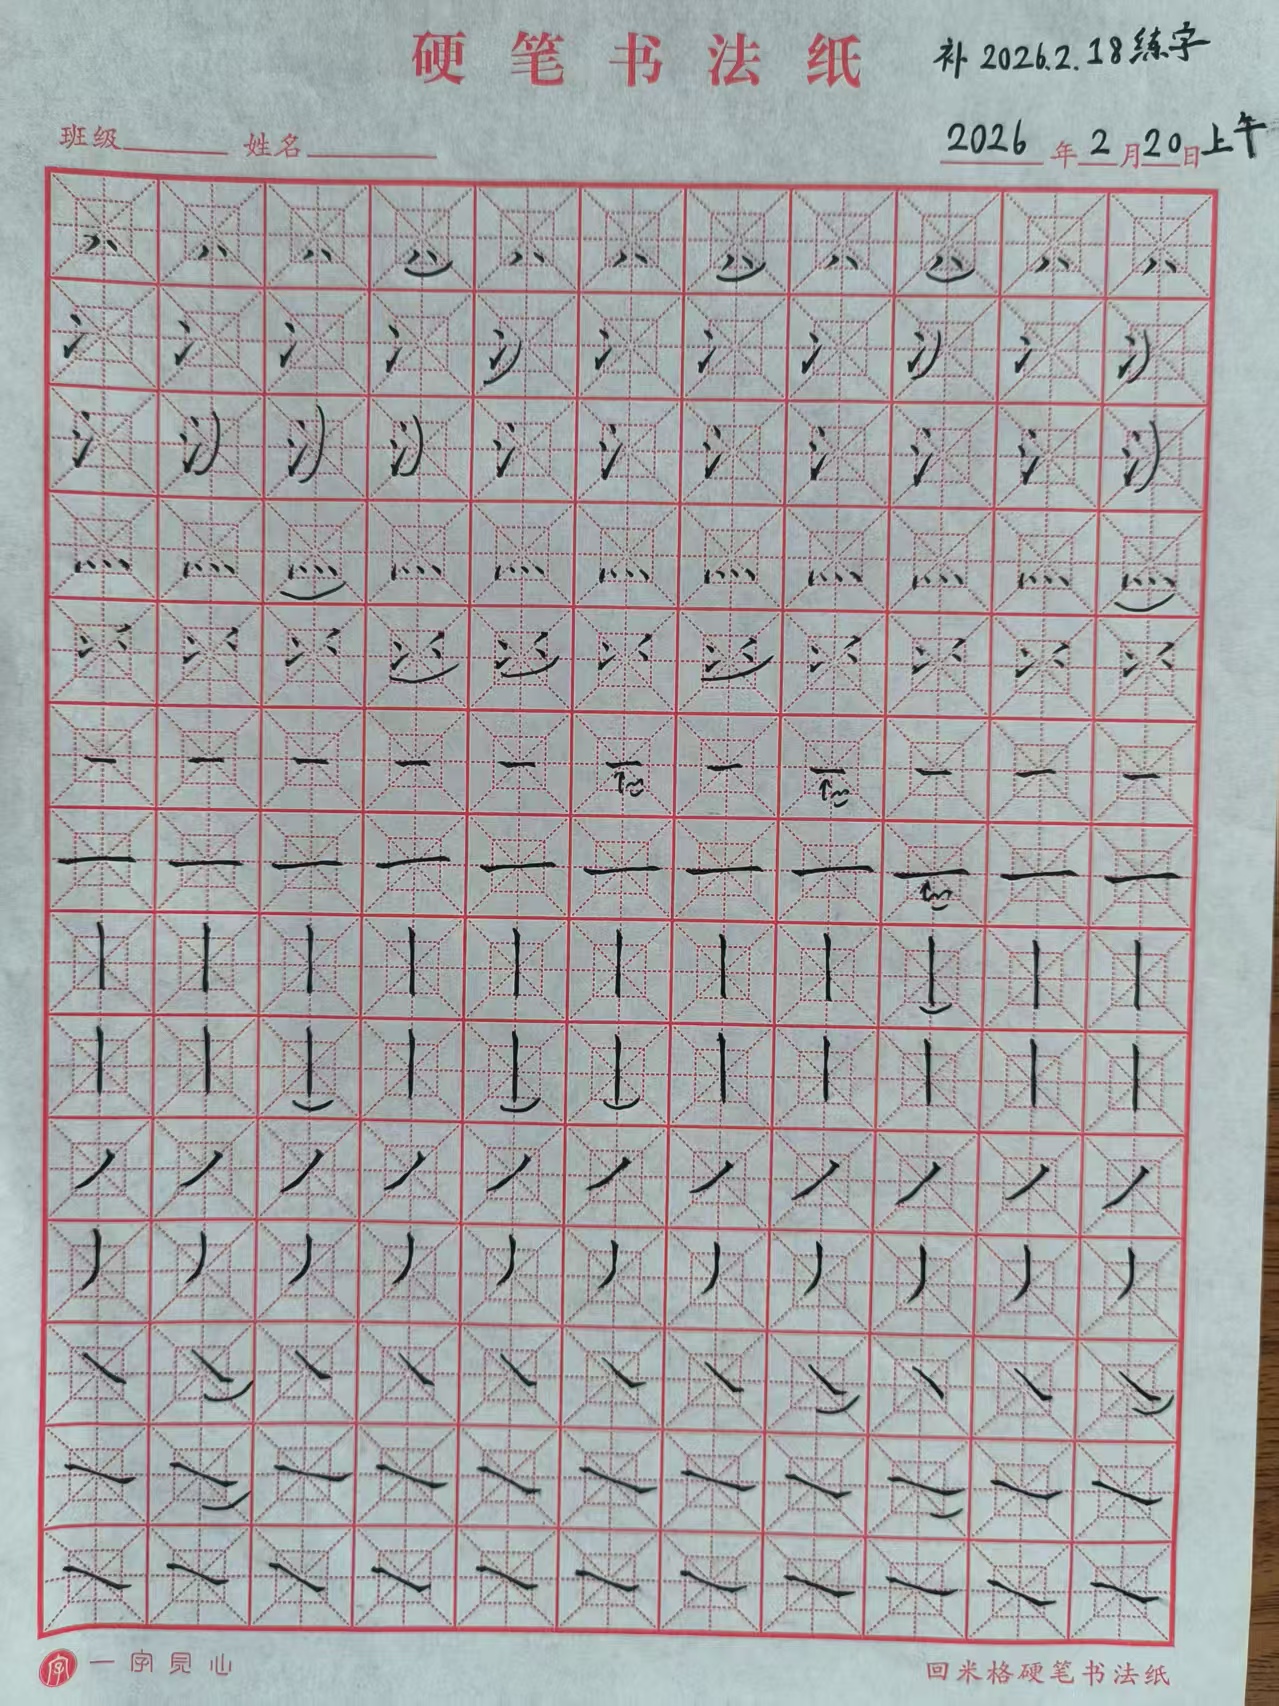 硬笔书法纸
补 2026.2.18练字
班级 姓名
2026年2月20日上午
一字见心
回米格硬笔书法纸